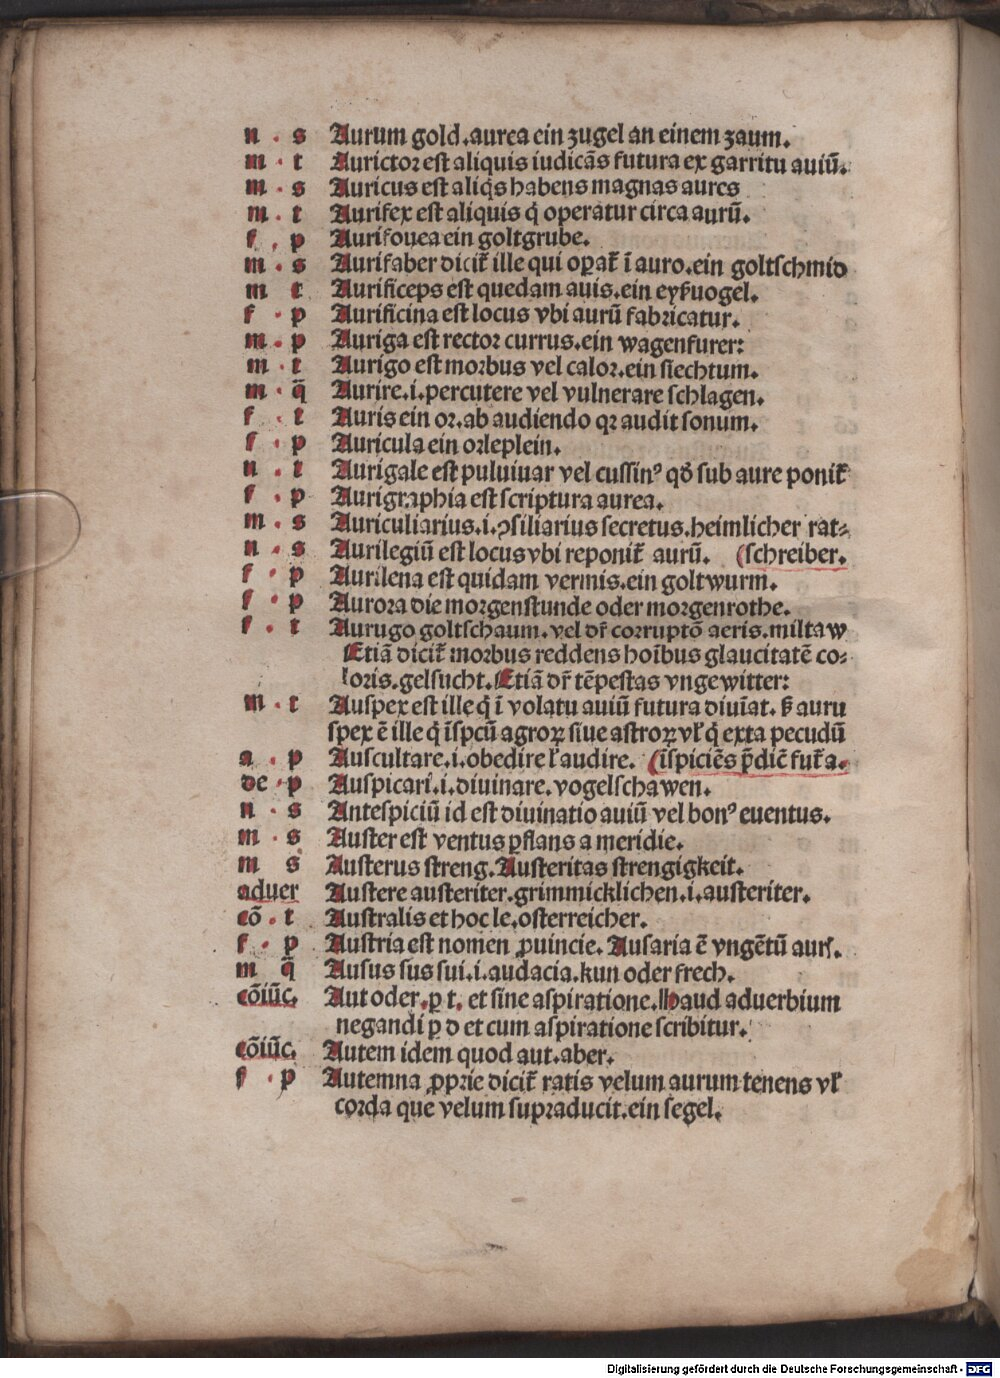 n · s Aurum gold.aurea ein zugel an einem zaum.
m · t Aurictor est aliquis iudicãs futura ex garritu auiũ.
m · s Auricus est aliq̃s habens magnas aures
m · t Aurifex est aliquis q̇ operatur circa aurũ.
f · p Aurifouea ein goltgrube.
m · s Aurifaber dicit̃ ille qui oꝑat̃ ĩ auro.ein goltschmid
m t Aurificeps est quedam auis.ein eyßuogel.
f · p Aurificina est locus vbi aurũ fabricatur.
m · p Auriga est rector currus.ein wagenfurer:
m · t Aurigo est morbus vel calor.ein siechtum.
m · q̃ Aurire.i.percutere vel vulnerare schlagen.
f · t Auris ein or.ab audiendo qꝛ audit sonum.
f · p Auricula ein orleplein.
n · t Aurigale est puluiuar vel cussinꝰ qđ sub aure ponit̃
f · p Aurigraphia est scriptura aurea.
m · s Auriculiarius.i.ꝯsiliarius secretus.heimlicher rat⸗
n · s Aurilegiũ est locus vbi reponit̃ aurũ. (schreiber.
f · p Aurilena est quidam vermis.ein goltwurm.
f · p Aurora die morgenstunde oder morgenrothe.
f · t Aurugo goltschaum.vel dr̃ corruptõ aeris.miltaw
Etiã dicit̃ morbus reddens hoĩbus glaucitatẽ co⸗
loris.gelsucht.Etiã dr̃ tẽpestas vngewitter:
m · t Auspex est ille q̇ ĩ volatu auiũ futura diuĩat. ß auru
spex ẽ ille q̇ ĩspcũ agroꝝ siue astroꝝ vl̃ q̇ exta pecudũ
a · p Auscultare.i.obedire l̃ audire. (ĩspiciẽs p̃diẽ fut̃a.
de · p Auspicari.i.diuinare.vogelschawen.
n · s Antespiciũ id est diuinatio auiũ vel bonꝰ euentus.
m · s Auster est ventus ꝑflans a meridie.
m s Austerus streng.Austeritas strengigkeit.
aduer Austere austeriter.grimmicklichen.i.austeriter.
cõ · t Australis et hoc le.osterreicher.
f · p Austria est nomen ꝓuincie. Ausaria ẽ vngẽtũ auꝛꝭ.
m q̃ Ausus sus sui.i.audacia.kun oder frech.
cõiũc. Aut oder.ꝑ t. et sine aspiratione.Haud aduerbium
negandi ꝑ d et cum aspiratione scribitur.
cõiũc. Autem idem quod aut.aber.
f · p Autemna ꝓprie dicit̃ ratis velum aurum tenens vl̃
corda que velum supraducit.ein segel.
Digitalisierung gefördert durch die Deutsche Forschungsgemeinschaft - DFG